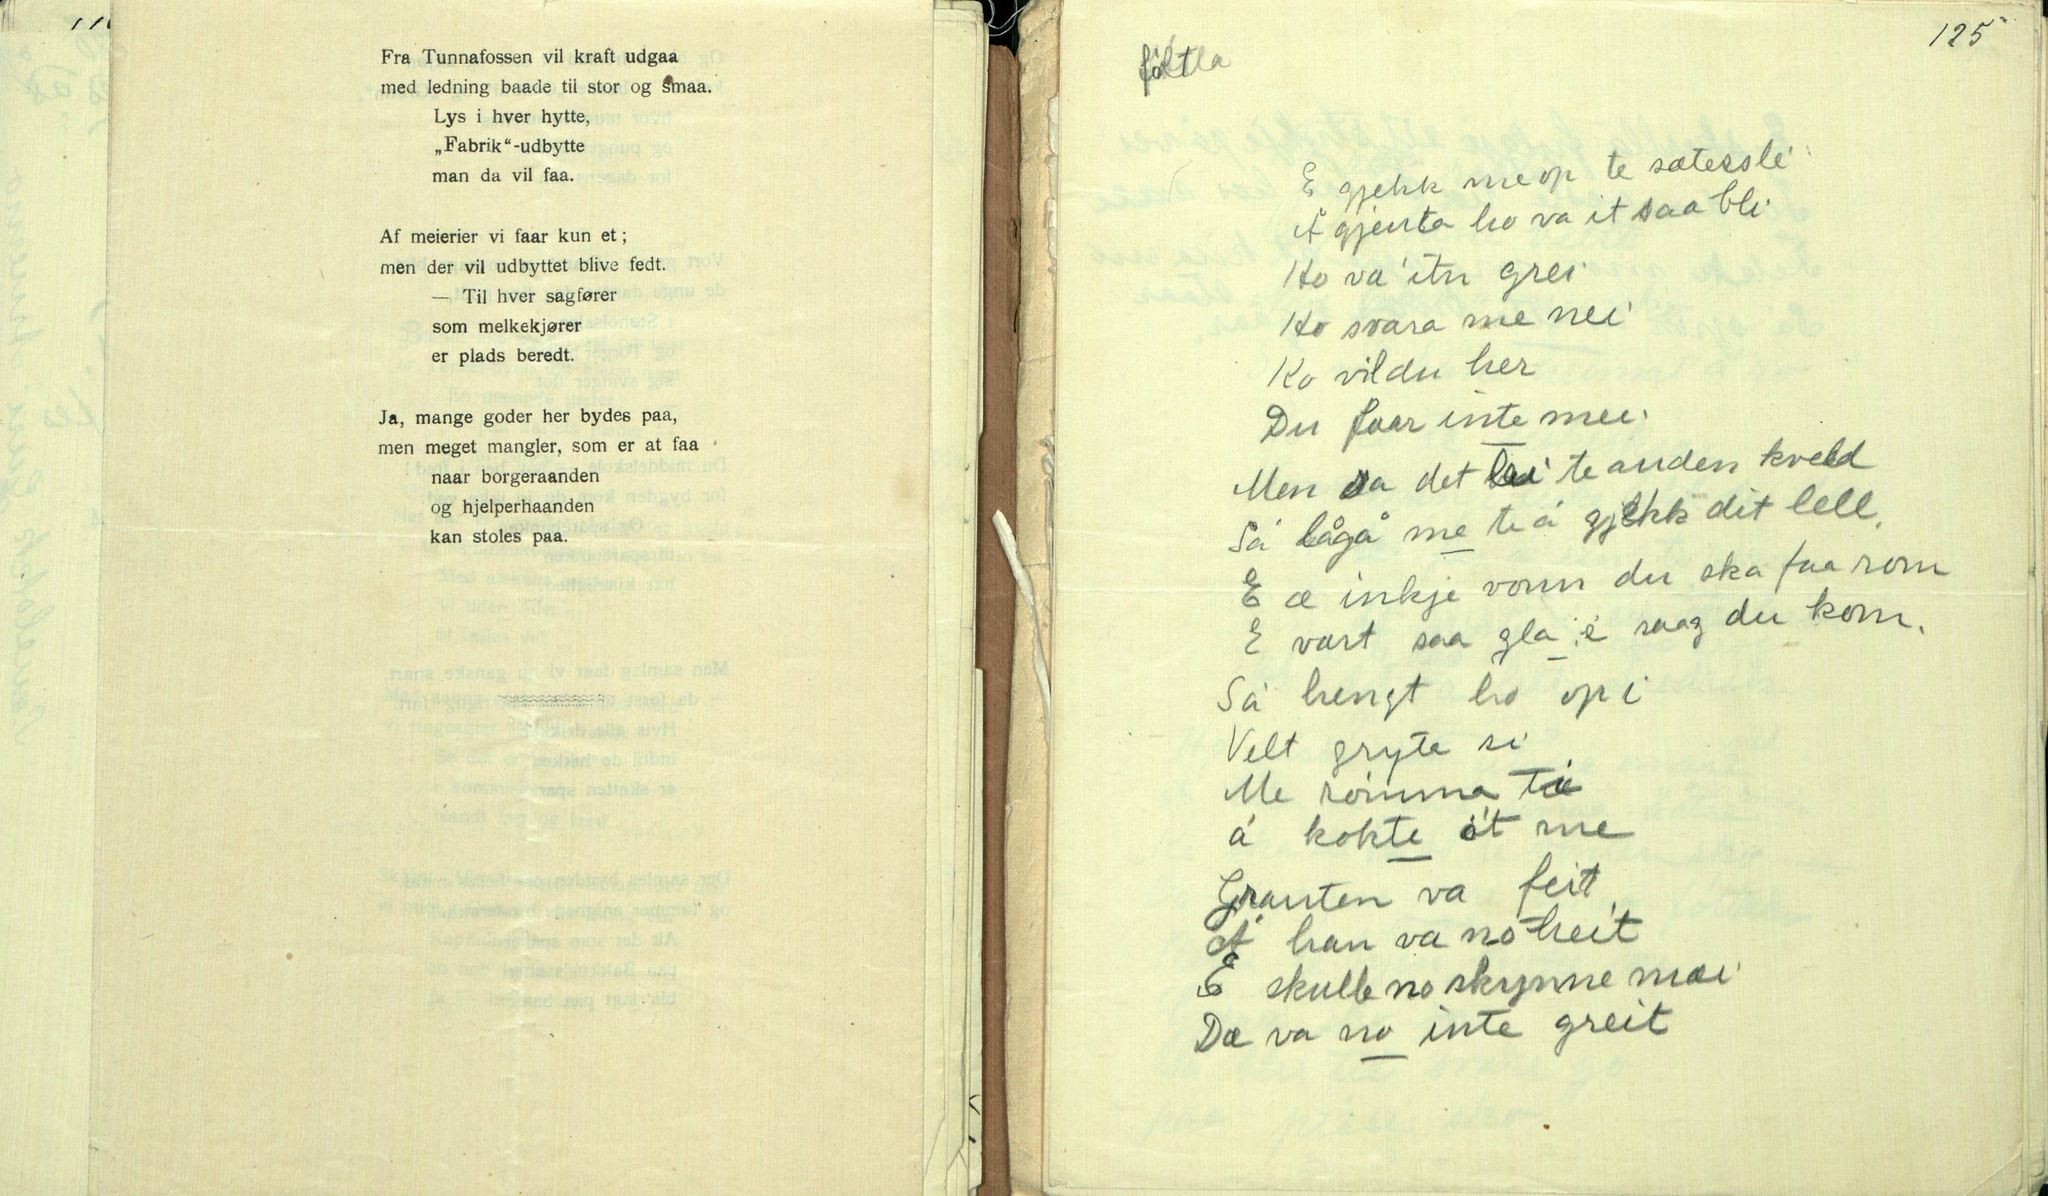 Fra Tunnafossen vil kraft udgaa
med ledning baade til stor og smaa.
Lys i hver hytte,
„Fabrik“-udbytte
man da vil faa.
Af meierier vi faar kun et;
men der vil udbyttet blive fedt.
— Til hver sagfører
som melkekjører
er plads beredt.
Ja, mange goder her bydes paa,
men meget mangler, som er at faa
naar borgeraanden
og hjelperhaanden
kan stoles paa.
125
E gjekk me op te sætessli
Å gjenta ho va it saa bli
Ho va itn grei
Ho svara me nei
Ko vil du her
Du faar inte mei.
Men da det lei te anden kveld
Så lågå me te å gjekk dit lell.
E æ inkje vonn du ska faa rom
E vart saa gla é saag du kom.
Så hengt ho op i
Velt gryte si
Me römma ti
å kokte åt me
Grauten va feit
Å han va no heit
E skulle no skynne mæi
Dæ va no inte greit